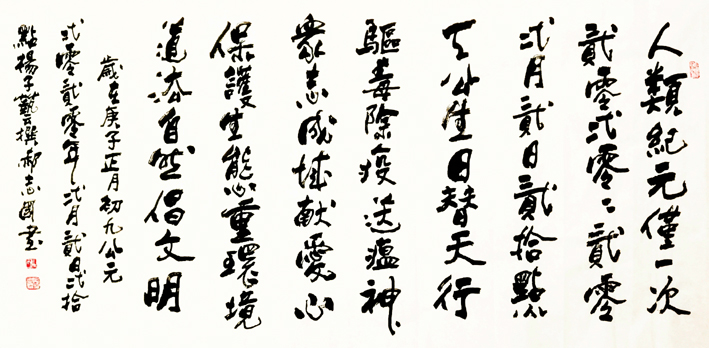 人類紀元僅一次
貳零弍零〻貳零
弍月貳日貳拾點
天公生日替天行
驅毒除疫送瘟神
衆志成城献愛心
保護生態重環境
道法自然倡文明
歲在庚子正月初九公元
弍零貳零年弍月貳日弍拾
點楊子藝撰郝志國書